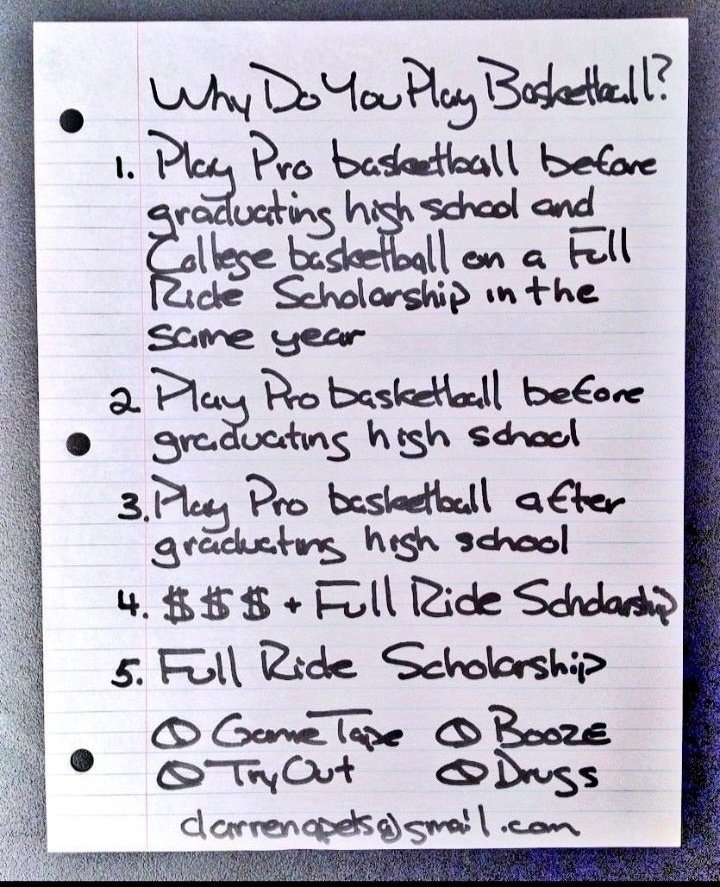 Why Do You Play Basketball?
1. Play Pro basketball before
graduating high school and
College basketball on a Full
Ride Scholarship in the
same year
2 Play Pro basketball before
graduating high school
3. Play Pro basketball after
graduating high school
4. $$$ + Full Ride Scholarship
5. Full Ride Scholarship
Game Tape Booze
Try Out Drugs
darrenapets@gmail.com